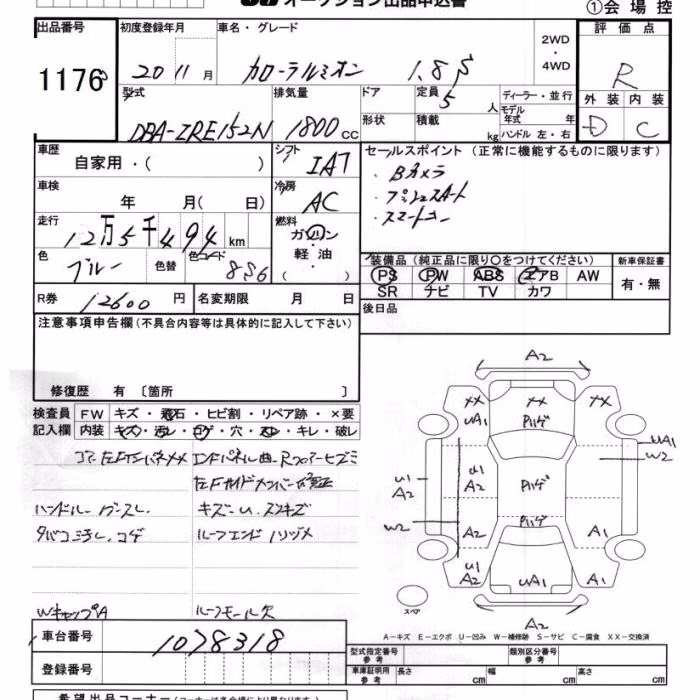 オークション出品申込書
①会場控
出品番号 初度登録年月 車名・グレード 2WD・4WD 評価点
1176 20 11月 カローラルミオン 1.8S R
型式 排気量 ドア 定員 5人 ディーラー・並行 外装 内装
DBA-ZRE152N 1800cc 形状 積載 kg モデル年式 年 ハンドル 左・右 D C
車歴 自家用・( ) シフト IAT
セールスポイント (正常に機能するものに限ります)
・Bカメラ
・プッシュスタート
車検 年 月( 日) 冷房 AC
走行 12万5千494km 燃料 ガソリン 軽油 ( )
色 ブルー 色替 色コード 8S6
装備品 (純正品に限り○をつけてください) 新車保証書
PS PW ABS エアB AW 有・無
SR ナビ TV カワ
R券 12600円 名変期限 月 日
後日品
注意事項申告欄 (不具合内容等は具体的に記入して下さい)
修復歴 有 〔箇所 〕
検査員 FW キズ・飛石・ヒビ割・リペア跡・×要
記入欄 内装 キズ・汚レ・コゲ・穴・スレ・キレ・破レ
コア、左Fインパネメメ エンドパネル曲、Rフロアーヒズミ
左Fサイドメンバー修正
ハンドル キズ・U、スリキズ
タバコ汚レ、コゲ ルーフエンドハリヅメ
WキャップA ルーフモール欠
A2
XX XX XX
UA1 ハゲ
UA1
W2
U1 A2
U1 A2
ハゲ
W2
ハゲ
A2 A1
U1 A2 UA1 A1
スペア
A2
A－キズ E－エクボ U－凹み W－補修跡 S－サビ C－腐食 XX－交換済
車台番号 1078318
型式指定番号 参考 類別区分番号 参考
登録番号
車庫証明用 参考 長さ cm 幅 cm 高さ cm
希望出品コーナー